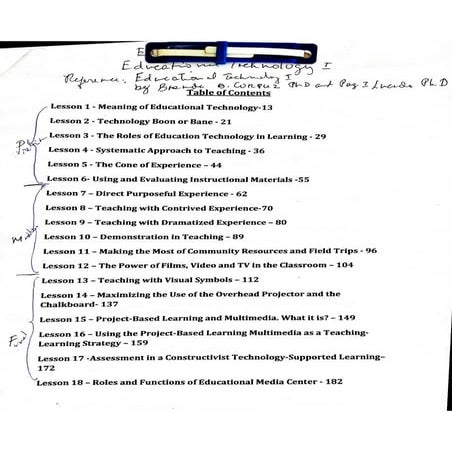 Educational Technology I
Reference: Educational Technology I
by Brenda B. Corpuz PhD and Paz I Lucido Ph.D
Table of Contents
Lesson 1 - Meaning of Educational Technology-13
Lesson 2 - Technology Boon or Bane - 21
Lesson 3 - The Roles of Education Technology in Learning - 29
Lesson 4 - Systematic Approach to Teaching - 36
Lesson 5 - The Cone of Experience – 44
Lesson 6- Using and Evaluating Instructional Materials -55
Lesson 7 – Direct Purposeful Experience - 62
Lesson 8 – Teaching with Contrived Experience-70
Lesson 9 – Teaching with Dramatized Experience – 80
Lesson 10 – Demonstration in Teaching – 89
Lesson 11 – Making the Most of Community Resources and Field Trips - 96
Lesson 12 – The Power of Films, Video and TV in the Classroom – 104
Lesson 13 – Teaching with Visual Symbols – 112
Lesson 14 – Maximizing the Use of the Overhead Projector and the
Chalkboard- 137
Lesson 15 – Project-Based Learning and Multimedia. What it is? – 149
Lesson 16 – Using the Project-Based Learning Multimedia as a Teaching-
Learning Strategy – 159
Lesson 17 -Assessment in a Constructivist Technology-Supported Learning–
172
Lesson 18 – Roles and Functions of Educational Media Center - 182